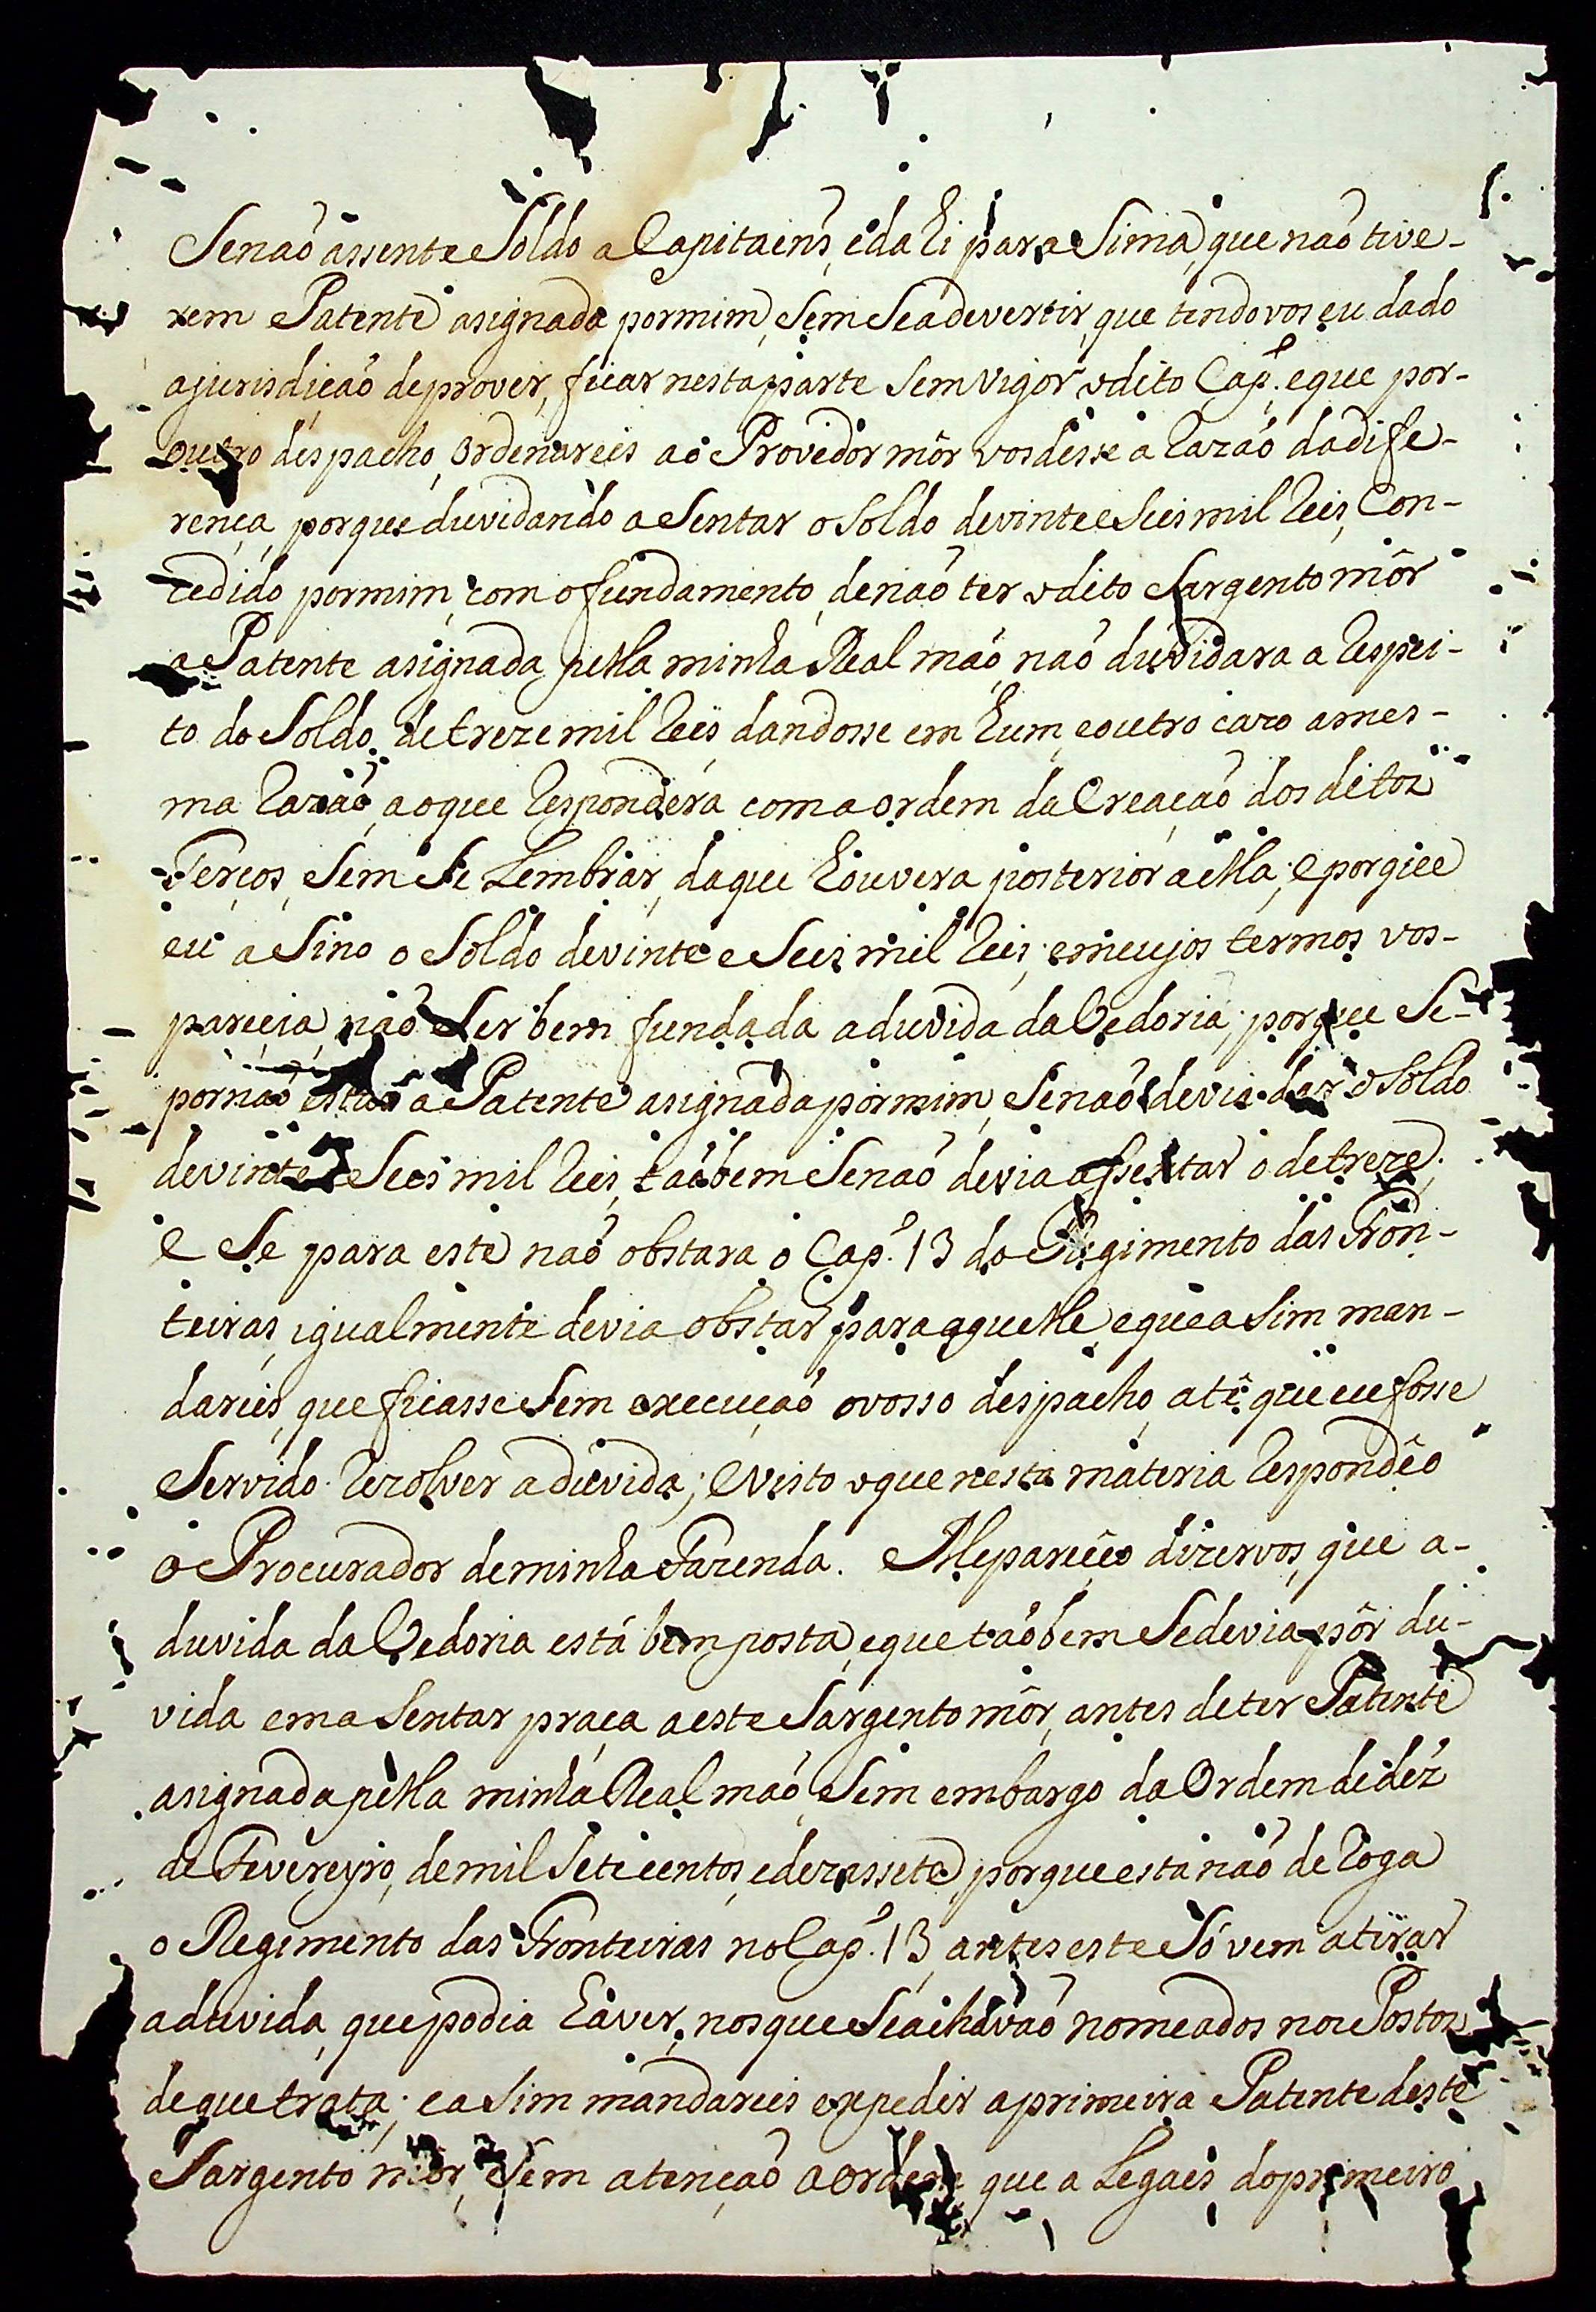 Senaõ assente Soldo a Capitaens, e da hi para Sima, que naõ tive-
rem Patente asignada por mim, Sem Se adevertir, que tendovos eu dado
a jurisdiçaõ de prover, ficar nesta parte Sem vigor o dito Cap.º; e que por-
outro despacho, ordenareis ao Provedor môr vos desse a razaõ da dife-
rença, porque duvidando a Sentar o Soldo de vinte e Seis mil reis, Con-
cedido por mim, com o fundamento, de naõ ter o dito Sargento môr
a Patente asignada pella minha Real maõ, naõ duvidara a respei-
to do Soldo, de treze mil reis dandosse em hum, e outro cazo a mes-
ma razaõ, ao que respondera com a ordem da Creaçaõ dos ditos
Terços, Sem Se Lembrar, da que houvera posterior a ella; e porque
eu a Sino o Soldo de vinte e Seis mil reis; em cujos termos vos-
parecia, naõ Ser bem fundada a duvida da Vedoria; porque Se-
por naõ estar a Patente asignada por mim, Senaõ devia dar o Soldo
de vinte e Seis mil reis, taõbem Senaõ devia assentar o de treze;
e Se para este naõ obstara o Cap.º 13 do Regimento das Fron-
teiras, igualmente devia obstar para aquelle, e que a Sim man-
dareis, que ficasse Sem execuçaõ o vosso despacho, atê que eu fosse
Servido rezolver a duvida; e visto o que nesta materia respondêo
o Procurador de minha Fazenda. Me pareçêo dizervos, que a-
duvida da Vedoria está bem posta, e que taõbem Se devia pôr du-
vida em a Sentar praça a este Sargento môr, antes de ter Patente
asignada pella minha Real maõ, Sem embargo da Ordem de déz
de Fevereyro, de mil Setecentos, e dezassete, porque esta naõ deroga
o Regimento das Fronteiras no Cap.º 13, antes este Só vem a tirar
a duvida, que podia haver, nos que Se achavaõ nomeados nos Postos
de que trata; e a Sim mandareis expedir a primeira Patente deste
Sargento môr, Sem atençaõ a ordem que a Legais, do primeiro